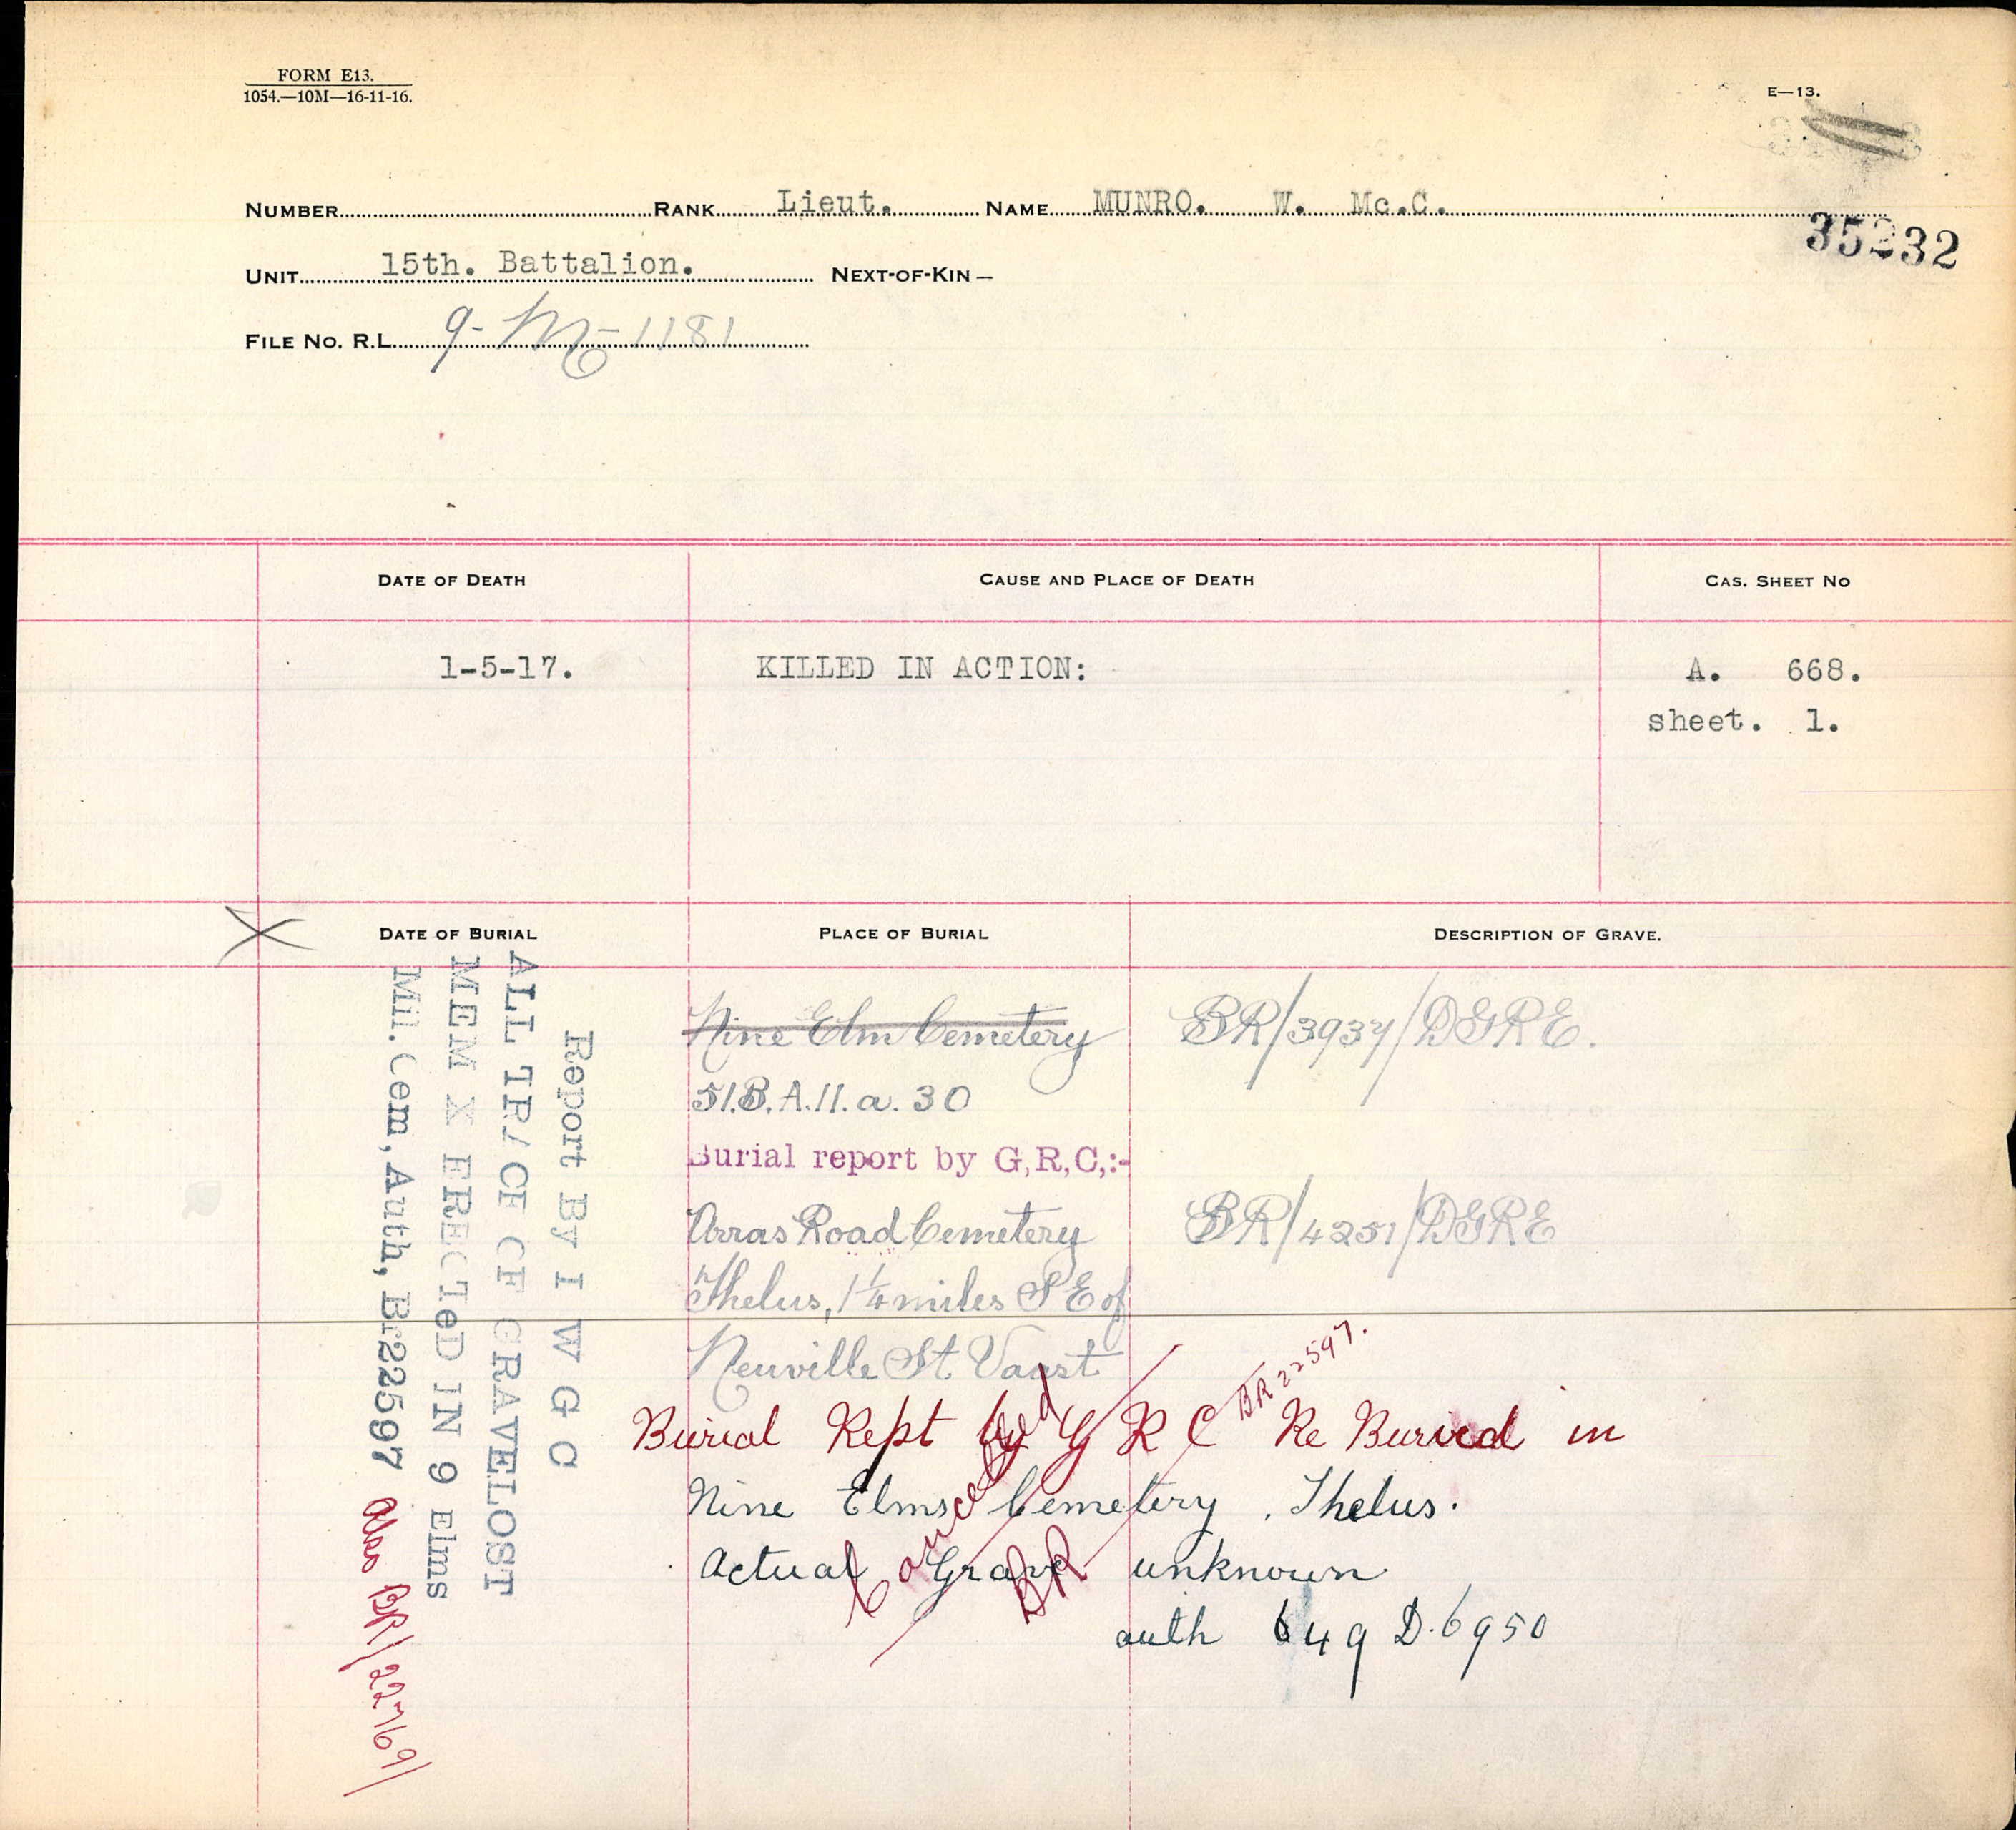 FORM E13.
1054.—10M—16-11-16.
E—13.
NUMBER RANK Lieut. NAME MUNRO. W. Mc.C.
35232
UNIT 15th. Battalion. NEXT-OF-KIN —
FILE NO. R.L. 9-M-1181
DATE OF DEATH CAUSE AND PLACE OF DEATH CAS. SHEET NO
1-5-17. KILLED IN ACTION: A. 668.
sheet. 1.
X
DATE OF BURIAL PLACE OF BURIAL DESCRIPTION OF GRAVE.
Nine Elm Cemetery BR/3937/DGRE.
51.B.A.11.a. 30
Burial report by G,R,C,:-
Arras Road Cemetery BR/4251/DGRE
Thelus, 1¼ miles S E of
Neuville St. Vaast
BR 22597.
Burial Rept by G R C Re Buried in
Nine Elms Cemetery, Thelus.
Actual Grave unknown
auth 649 D.6950
Cancelled
BR
Report By I W G C
ALL TRACE OF GRAVELOST
MEM X ERECTeD IN 9 Elms
Mil.Cem, Auth, Br22597 also BR/22769/